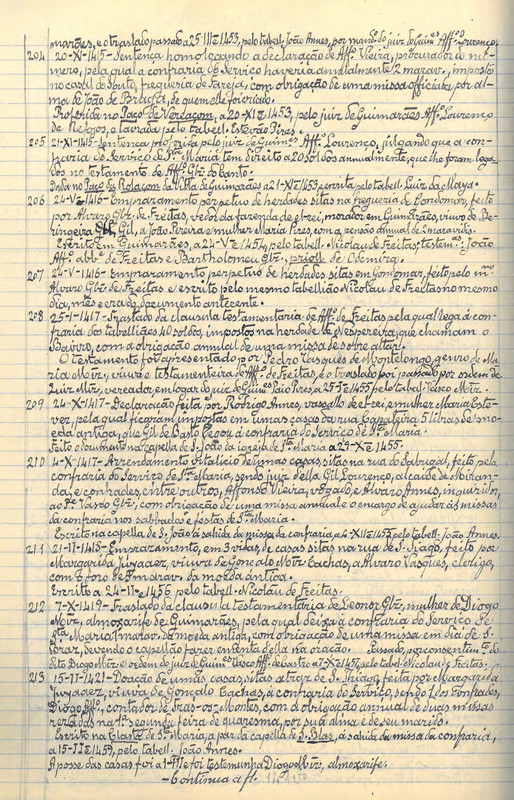 marões, e o traslado passado a 25-III-1453, pelo tabell. João Annes, por mand.º do juiz de Guim.es Aff.º Lourenço.
204 20-XI-1415-Sentença homologando a declaração de Aff.º Vieira, procurador do nu-
mero, pela qual a confraria do Serviço haveria annualmente 2 marav., impostos
no casal de Souto, freguesia de Fareja, com obrigação de uma missa officiada, por al-
ma de João de Briteiros, de quem elle foi criado.
Proferida no Paço de Vereaçom, a 20-XI-1453, pelo juiz de Guimarães Aff.º Lourenço
de Refojos, e lavrada pelo tabell. Estevão Pires.
205 21-XI-1415-Sentença proferida pelo juiz de Guim.es Aff.º Lourenço, julgando que a con-
fraria do Serviço de S.ta Maria tem direito a 20 soldos annualmente, que lhe foram lega-
dos no testamento de Aff.º Glz. do Canto.
Dada no Paço da Rolaçom da Villa de Guimarães a 21-XI-1453, escrita pelo tabell. Luiz da Maya.
206 24-V-1416-Emprazamento perpetuo de herdades sitas na freguesia de Gondomar, feito
por Alvaro Glz. de Freitas, vedor da fazenda de el-rei, morador em Guimarães, viuvo de Be-
ringeira Gil, a João Pereira e mulher Maria Pires, com a pensão annual de 2 maravidis.
Escrito em Guimarães, a 24-V-1454, pelo tabell. Nicolau de Freitas, testem.as João
Aff.º abb.e de Freitas e Bartholomeu Glz., prioll de Odemira.
207 24-V-1416-Emprazamento perpetuo de herdades sitas em Gondomar, feito pelo m.mo
Alvaro Glz. de Freitas e escrito pelo mesmo tabellião Nicolau de Freitas no mesmo
dia, mês e era do documento antecente.
208 25-I-1417-Traslado da clausula testamentaria de Aff.º de Freitas pela qual lega á con-
fraria dos tabelliães 40 soldos, impostos na herdade de Nespereira, que chamam o
Bairro, com a obrigação annual de uma missa de sobre altar.
O testamento foi apresentado por Pedro Vasques de Montelongo, genro de Ma
ria Mrz., viuva e testamenteira de Aff.º de Freitas, e o traslado foi passado por ordem de
Luiz Mrz., vereador, em logar do juiz de Guim.es Paio Pires, a 25-I-1455, pelo tabell. Vasco Mrz.
209 24-X-1417-Declaração feita por Rodrigo Annes, vassallo de el-rei, e mulher Maria Este-
vez, pela qual ficaram impostas em umas casas da rua Çapateira 5 libras de mo-
eda antiga, que Gil de Basto legou á confraria do Serviço de S.ta Maria.
Feito o documento na capella de S. João da igreja de S.ta Maria a 29-X-1455.
210 4-X-1417-Arrendamento vitalicio de umas casas, sitas na rua do Sabugal, feito pela
confraria do Serviço de S.ta Maria, sendo juiz della Gil Lourenço, alcaide de Miran-
da, e confrades, entre outros, Affonso Vieira, vogado, e Alvaro Annes, inquiridor,
ao P.e Vasco Glz., com obrigação de uma missa annual e o encargo de ajudar ás missas
da confraria nos sabbados e festas de S.ta Maria.
Escrito na capella de S. João, á sahida da missa da confraria, a 4-XII-1455, pelo tabell. João Annes.
211 21-II-1418-Emprazamento, em 3 vidas, de casas sitas no rua de S. Tiago, feito por
Margarida Juzaaez, viuva de Gonçalo Mrz. Cachas, a Alvaro Vasques, clerigo,
com o foro de marav. da moeda antiga.
Escrito a 24-II-1456, pelo tabell. Nicolau de Freitas.
212 7-X-1419-Traslado da clausula testamentária de Leonor Glz., mulher de Diogo
Mrz, almoxarife de Guimarães, pela qual deixa á confraria do Serviço de
S.ta Maria 1 marav. de moeda antiga, com obrigação de uma missa em dia de S.
Braz, devendo o capellão fazer ementa della na oração. Passado, por consentim.to do
dito Diogo Mrz. e ordem do juiz de Guim.es Vasco Aff.º de Castro a 7-X-1457, pelo tabel. Nicolau de Freitas.
213 15-II-1421-Doação de umas casas, sitas a trás de S. Thiago, feita por Margarida
Juzaaez, viuva de Gonçalo Cachas, á confraria do Serviço, sendo 1 dos confrades,
Diogo Aff.º, contador de Tras-os-Montes, com a obrigação annual de duas missas
rezadas na 1.ª segunda feira de quaresma, por sua alma e de seu marido.
Escrito na Claustra de S.ta Maria, a par da capella de S. Blas, á sahida da missa da confraria,
a 15-II-1459, pelo tabell. João Annes.
A posse das casas foi a e foi testemunha Diogo Mrz, almoxarife.
-Continua a fl.